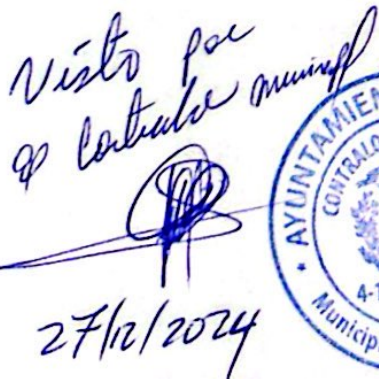 Visto por
el Contralor municipal
27/12/2024
AYUNTAMIEN
CONTRALO
Municip